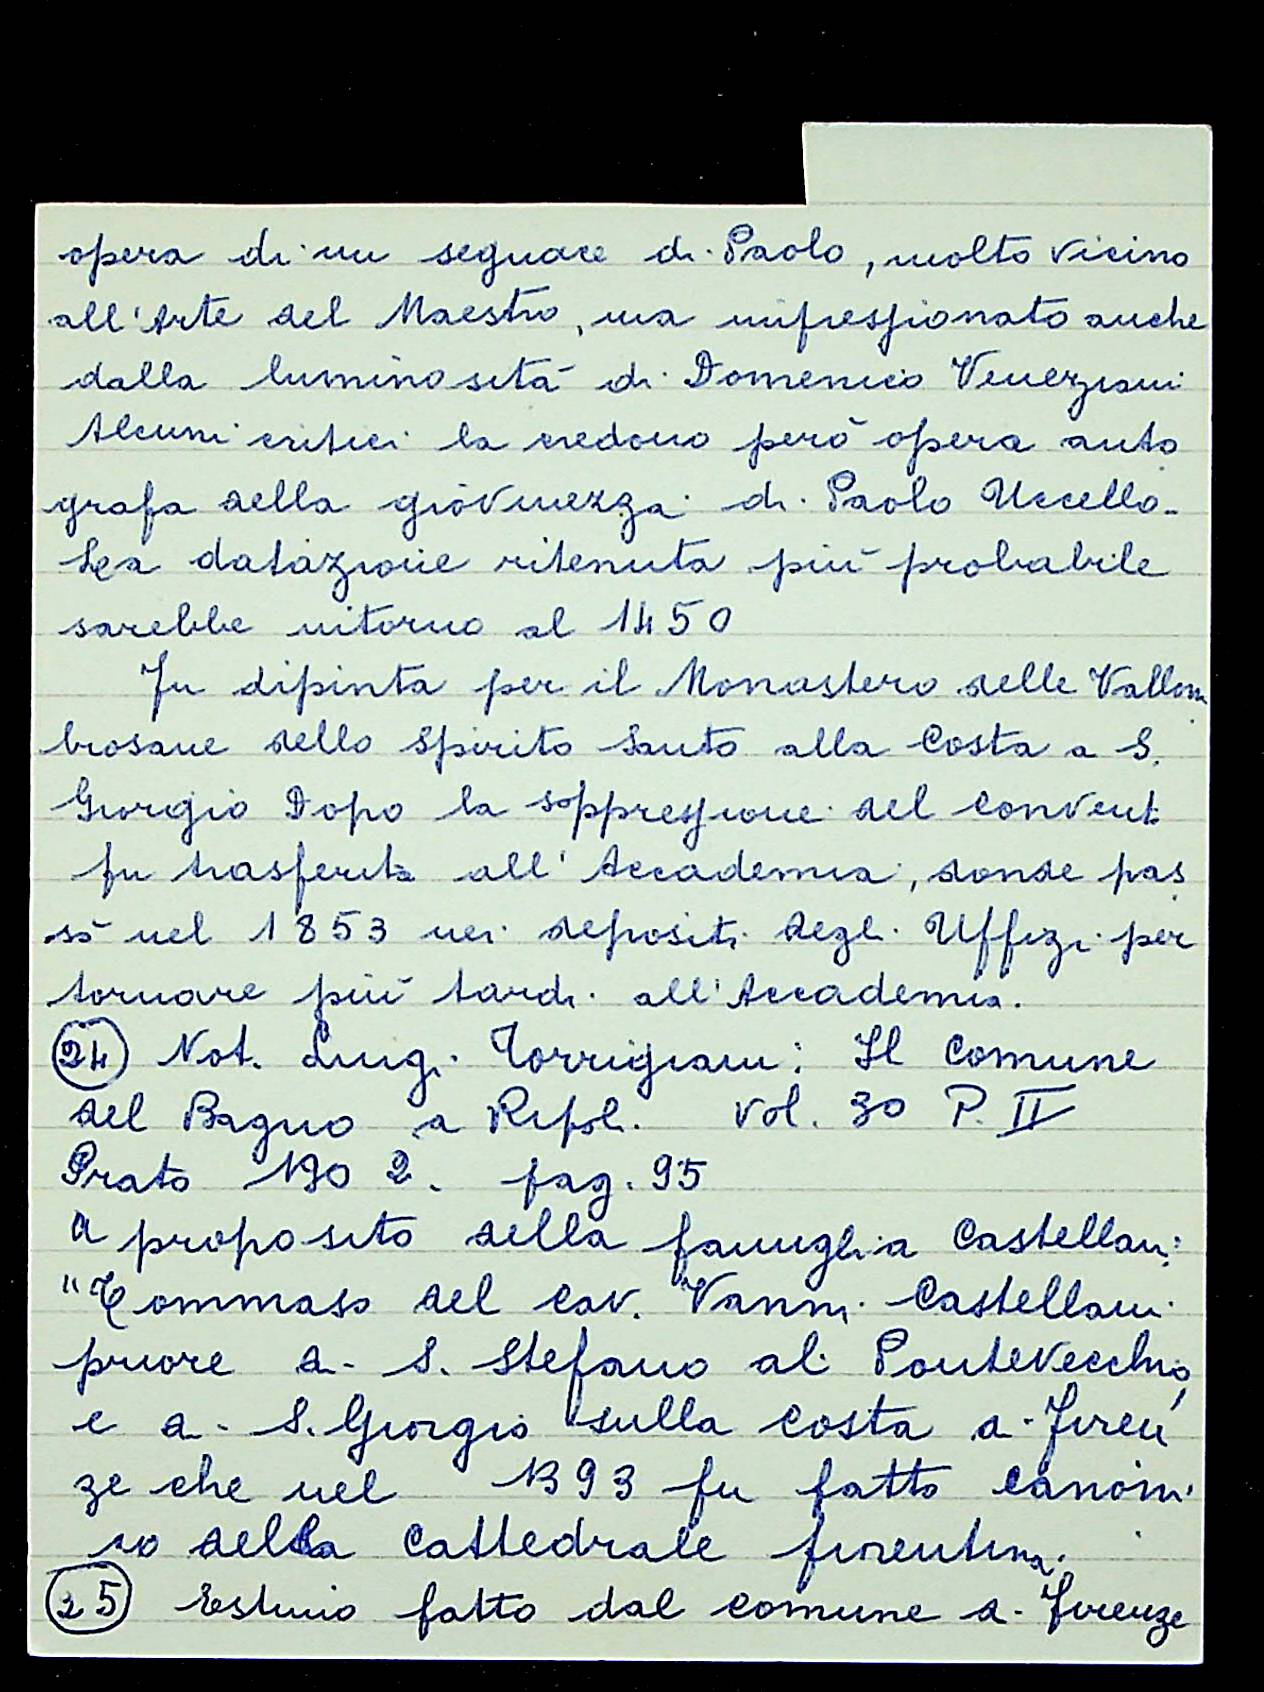 opera di un seguace di Paolo, molto vicino
all'Arte del Maestro, ma impressionato anche
dalla luminosità di Domenico Veneziani
Alcuni critici la credono però opera auto
grafa della giovinezza di Paolo Uccello.
La datazione ritenuta più probabile
sarebbe intorno al 1450
Fu dipinta per il Monastero delle Vallom
brosane dello Spirito Santo alla Costa a S.
Giorgio Dopo la soppressione del convent
fu trasferita all'Accademia, donde pas
sò nel 1853 nei depositi degli Uffizi per
tornare più tardi all'Accademia.
24 Not. Luigi Torrigiani: Il Comune
del Bagno a Ripoli. Vol. 30 P. II
Prato 1902. pag. 95
a proposito della famiglia Castellani:
"Tommaso del Cav. Vanni Castellani
priore a S. Stefano al Pontevecchio,
e a S. Giorgio sulla costa a Firen
ze che nel 1393 fu fatto canoni
co della Cattedrale fiorentina.
25 Estimo fatto dal comune di Firenze